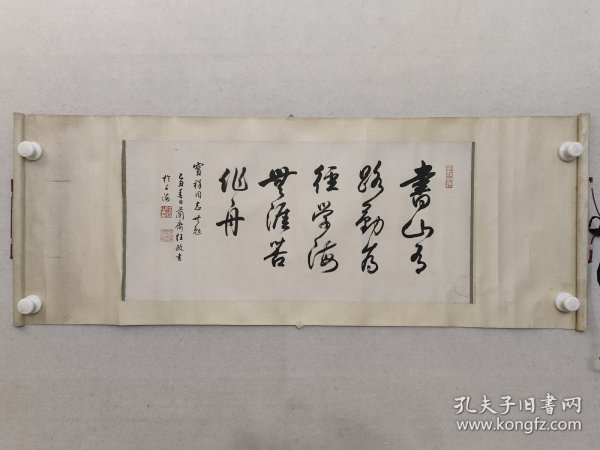 書山有
路勤為
徑学海
無涯苦
作舟
寶祥同志 世慰
己丑春日蘭齋任政書
於上海
孔夫子旧书网
www.kongfz.com